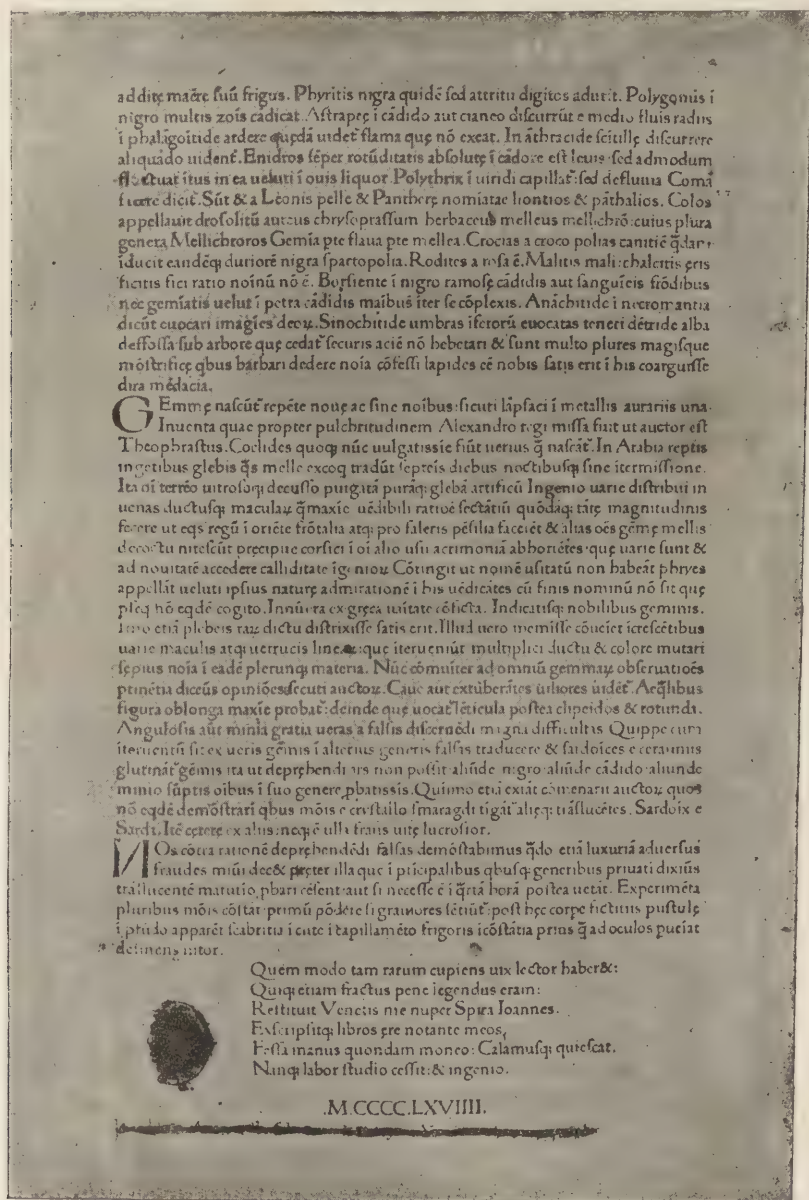 additę maēre suū frigus. Phyritis nigra quidē sed attritu digitos adurit. Polygonus ī
nigro multis zōis cādicat. Astrapęę ī cādido aut cianeo discurrūt e medio fluis radiis
ī phalāgoitide ardere quędā uidet̄ flama quę nō exeat. In āthracide scītillę discurrere
aliquādo uident̄. Enidros sēper rotūditatis absolutę ī cādore est leuis sed admodum
fluctuat ītus in ea ueluti ī ouis liquor. Polythrix ī uiridi capillat̄: sed defluuia Comaꝝ
facere dicit̄. Sūt & a Leonis pelle & Pantherę nomiatae liontios & pāthalios. Colos
appellauit drosolitū aureus chrysoprassum herbaceus melleus mellichrō: cuius plura
genera. Mellichroros Gemīa pte flaua pte mellea. Crocias a croco polias canitiē q̄dam
īducit eandēq; duriorē nigra spartopolia. Rodites a rosa ē. Malitis mali: chalcitis ęris
sicitis fici ratio noīnū nō ē. Borsiente ī nigro ramosę cādidis aut sanguīeis frōdibus
nec gemīatis uelut ī petra cādidis maībus īter se cōplexis. Anāchitide ī necromantia
dicūt euocari imagīes deoꝝ. Sinochitide umbras īferorū euocatas teneri dētride alba
deffossa sub arbore quę cedat̄ securis aciē nō hebetari & sunt multo plures magisque
mōstrificę qbus barbari dedere noīa cōfessi lapides eē nobis satis erit ī his coarguisse
dira mēdacia.
GEmmę nascūt̄ repēte nouę ac sine noībus: sicuti lāpsaci ī metallis aurariis una-
Inuenta quae propter pulchritudinem Alexandro regi missa fuit ut auctor est
Theophrastus. Coclides quoq; nūc uulgatissīe fiūt uerius q̄ nascāt̄. In Arabia reptis
ingētibus glebis q̄s melle excoq tradūt septeīs diebus noctibusq; sine ītermissione.
Ita oī terrēo uitrosoq; decusso purgatā purāq; glebā artificū Ingenio uarie distribui in
uenas ductusq; maculaꝝ q̄maxīe uēdibili ratioē sectātiū quōdāq; tātę magnitudinis
fecere ut eqs regū ī oriēte frōtalia atq; pro faleris pēsilia facerēt & alias oēs gēmę mellis
decoctu nitescūt pręcipue corsici ī oī alio usu acrimoniā abhorrētes. quę uarie sunt &
ad nouitatē accedere calliditate īgenioꝝ Cōtingit ut nomē usitatū non habeāt phryes
appellāt ueluti ipsius naturę admirationē ī his uēdicātes cū finis nominū nō sit quę
plęq nō eqdē cogito. Innūera ex gręca īuitate cōficta. Indicatisq; nobilibus gemmis.
Imo etiā plebeis raꝝ dictu distrixisse satis erit. Illud uero memīsse cōueīet īcrescētibus
uarie maculis atq; uerrucis lineę: que īterueniūt multiplici ductu & colore mutari
sępius noīa ī eadē plerunq; materia. Nūc cōmuīter ad omniū gemmaꝝ obseruatioēs
ptinētia dicēus opiniōes secuti auctoꝝ. Cauę aut extūberātes uiliores uidēt̄. Aeq̄libus
figura oblonga maxīe probat̄: deinde quę uocat̄ lēticula postea clipeidos & rotunda.
Angulosis aūt mīnīa gratia ueras a falsis discernēdi magna difficultas Quippe cum
īteruentū sit ex ueris gēmis ī alterius generis falsas traducere & sardoīces e ceraunis
glutināt̄ gēmis ita ut depręhendi ars non possit aliūde nigro aliūde cādido aliunde
minio sūptis oībus ī suo genere pbatissis. Quīimo etiā extāt cōmenarii auctoꝝ quos
nō eqdē demōstrari qbus mōis e crystallo smaragdi tigāt̄ alięq; trāslucētes. Sardoix e
Sarda. Itē cęterę ex aliis: neq; ē ulla fraus uitę lucrosior.
NOs cōtra rationē depręhendēdi falsas demōstabimus q̄do etiā luxuriā aduersus
fraudes mūiri decet. pręter illa que ī pricipalibus qbusq; generibus priuati dixīus
trāslucentē matutīo pbari cēsent aut si necesse ē ī q̄rtā horā postea uetāt. Experimēta
pluribus mōis cōstāt primū pōdere si grauiores sētiūt̄: post hęc corpe fictitiis pustulę
ī pfūdo apparēt scabritia ī cute ī capillamēto frigoris īcōstātia prius q̄ ad oculos puciat
desinens nitor.
Quem modo tam rarum cupiens uix lector haber&:
Quiq; etiam fractus pene legendus eram:
Restituit Venetis me nuper Spira Ioannes.
Exscripsitq; libros ęre notante meos,
Fessa manus quondam moneo: Calamusq; quiescat.
Nanq; labor studio cessit: & ingenio.
.M.CCCC.LXVIIII.